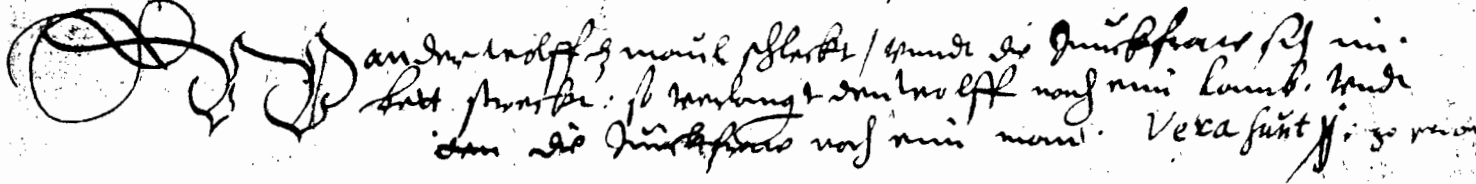 Wan der wolff dz maul schleckt / vnndt die Junckfraw sich im
bett streckt: so verlangt den wolff noch ein lamb. vndt
die Junckfraw noch ein man. Vera sunt